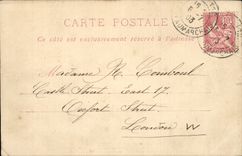 CARTE POSTALE
Ce côté est exclusivement réservé à l'adresse
Madame H.
Castle Street, East 17
Oxford Street
London W